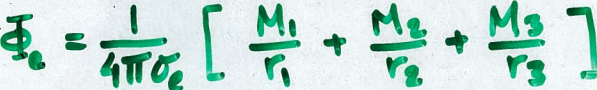 Φₑ = 1/4πσₑ [ M₁/r₁ + M₂/r₂ + M₃/r₃ ]